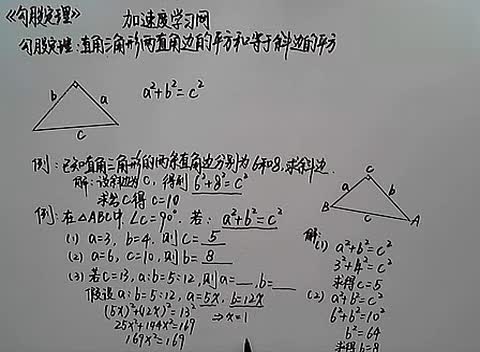 《勾股定理》 加速度学习网
勾股定理:直角三角形两直角边的平方和等于斜边的平方
b a
c
a²+b²=c²
例:已知直角三角形的两条直角边分别为6和8,求斜边.
解:设斜边为C,得到 6²+8²=c²
求得C得 c=10
例:在△ABC中,∠C=90°.若:a²+b²=c²
(1) a=3, b=4,则c=5
(2) a=6, c=10,则b=8
(3) 若C=13, a:b=5:12,则a=__,b=__
假设 a:b=5:12, a=5x, b=12x
(5x)²+(12x)²=13² ⇒x=1
25x²+144x²=169
169x²=169
C
a b
B c A
解:
(1) a²+b²=c²
3²+4²=c²
求得c=5
(2) a²+b²=c²
6²+b²=10²
b²=64
求得b=8